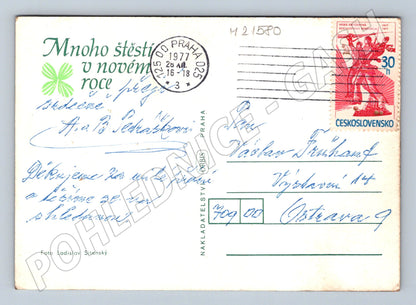 Mnoho štěstí
v novém
roce
přejí
srdečně
A. a B.
Děkujeme za milé přání
a těšíme se na
shledanou.
Foto Ladislav Sitenský
NAKLADATELSTVÍ ORBIS PRAHA
125 00 PRAHA 025
1977
16-18
3
421580
30
h
ČESKOSLOVENSKO
Pan
Václav Frühauf
Výstavní 14
709 00 Ostrava 9
POHLEDNICE - GALI